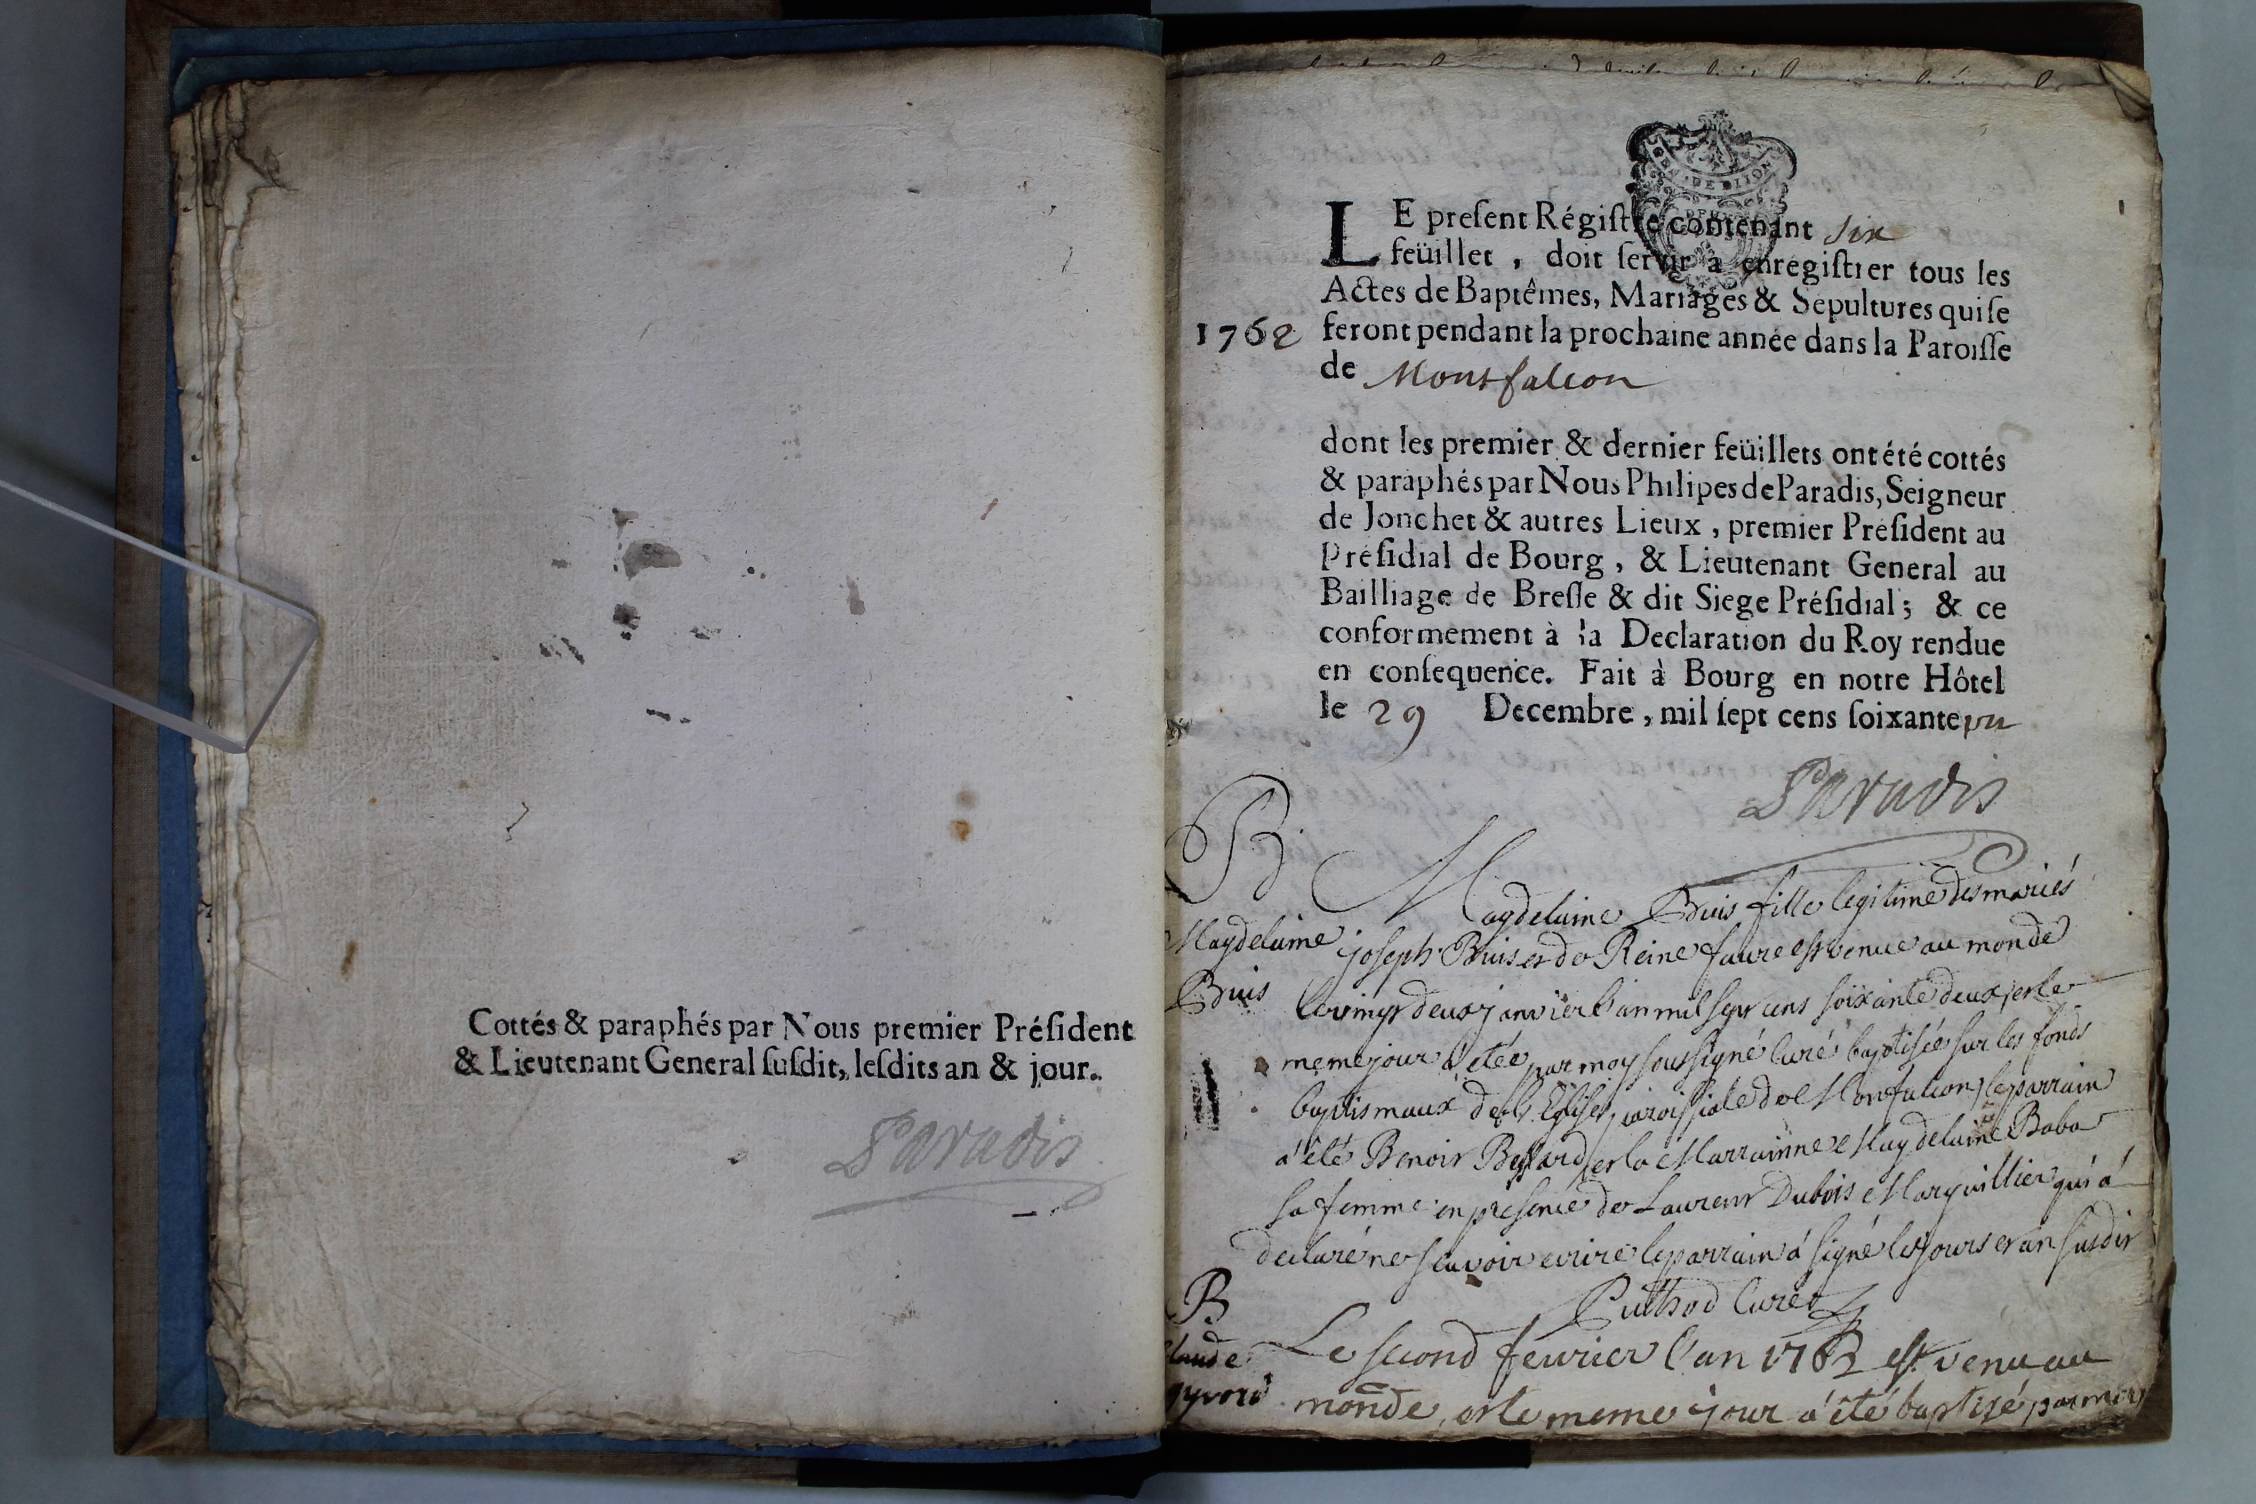 Cottés & paraphés par Nous premier Préſident
& Lieutenant General ſuſdit, leſdits an & jour.
Paradis
GEN. DE DIJON
1
LE preſent Régiſtre contenant six
feüillet, doit ſervir à enregiſtrer tous les
Actes de Baptêmes, Mariages & Sepultures qui ſe
1762 feront pendant la prochaine année dans la Paroiſſe
de Montfalcon
dont les premier & dernier feüillets ont été cottés
& paraphés par Nous Philipes de Paradis, Seigneur
de Jonchet & autres Lieux, premier Préſident au
Préſidial de Bourg, & Lieutenant General au
Bailliage de Breſſe & dit Siege Préſidial; & ce
conformement à la Declaration du Roy rendue
en conſequence. Fait à Bourg en notre Hôtel
le 29 Decembre, mil ſept cens ſoixante un
Paradis
B
Magdelaine
Buis
Magdelaine Buis fille legitime des mariés
joseph Buis et de Reine faure est venue au monde
le vingt deux janvier l'an mil sept cens soixante deux, et le
meme jour a étée par moy soussigné curé baptisée sur les fonds
baptismaux de l'Eglise paroissiale de Monfalcon, le parrain
a été Benoit Bessard, et la Marrainne Magdelaine Baba
sa femme en presence de Laurent Dubois Marguillier qui a
declaré ne scavoir ecrire le parrain a signé les jours et an susdit
Puthod Curé
B
Claude
Le second fevrier l'an 1762 est venu au
monde, et le meme jour a été baptisé par moy